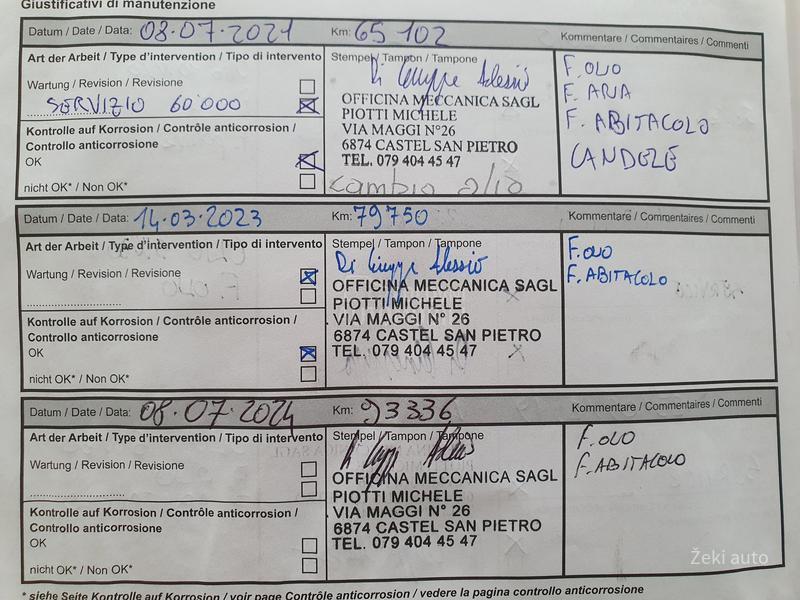 Giustificativi di manutenzione
Datum / Date / Data: 08.07.2021 Km: 65 102 Kommentare / Commentaires / Commenti
Art der Arbeit / Type d'intervention / Tipo di intervento
Wartung / Revision / Revisione
SERVIZIO 60'000
Kontrolle auf Korrosion / Contrôle anticorrosion /
Controllo anticorrosione
OK
nicht OK* / Non OK*
Stempel / Tampon / Tampone
OFFICINA MECCANICA SAGL
PIOTTI MICHELE
VIA MAGGI N°26
6874 CASTEL SAN PIETRO
TEL. 079 404 45 47
cambio olio
F. OLIO
F. ARIA
F. ABITACOLO
CANDELE
Datum / Date / Data: 14.03.2023 Km: 79750 Kommentare / Commentaires / Commenti
Art der Arbeit / Type d'intervention / Tipo di intervento
Wartung / Revision / Revisione
Kontrolle auf Korrosion / Contrôle anticorrosion /
Controllo anticorrosione
OK
nicht OK* / Non OK*
Stempel / Tampon / Tampone
OFFICINA MECCANICA SAGL
PIOTTI MICHELE
VIA MAGGI N° 26
6874 CASTEL SAN PIETRO
TEL. 079 404 45 47
F. OLIO
F. ABITACOLO
Datum / Date / Data: 08.07.2024 Km: 93336 Kommentare / Commentaires / Commenti
Art der Arbeit / Type d'intervention / Tipo di intervento
Wartung / Revision / Revisione
Kontrolle auf Korrosion / Contrôle anticorrosion /
Controllo anticorrosione
OK
nicht OK* / Non OK*
Stempel / Tampon / Tampone
OFFICINA MECCANICA SAGL
PIOTTI MICHELE
VIA MAGGI N° 26
6874 CASTEL SAN PIETRO
TEL. 079 404 45 47
F. OLIO
F. ABITACOLO
* siehe Seite Kontrolle auf Korrosion / voir page Contrôle anticorrosion / vedere la pagina controllo anticorrosione
Žeki auto